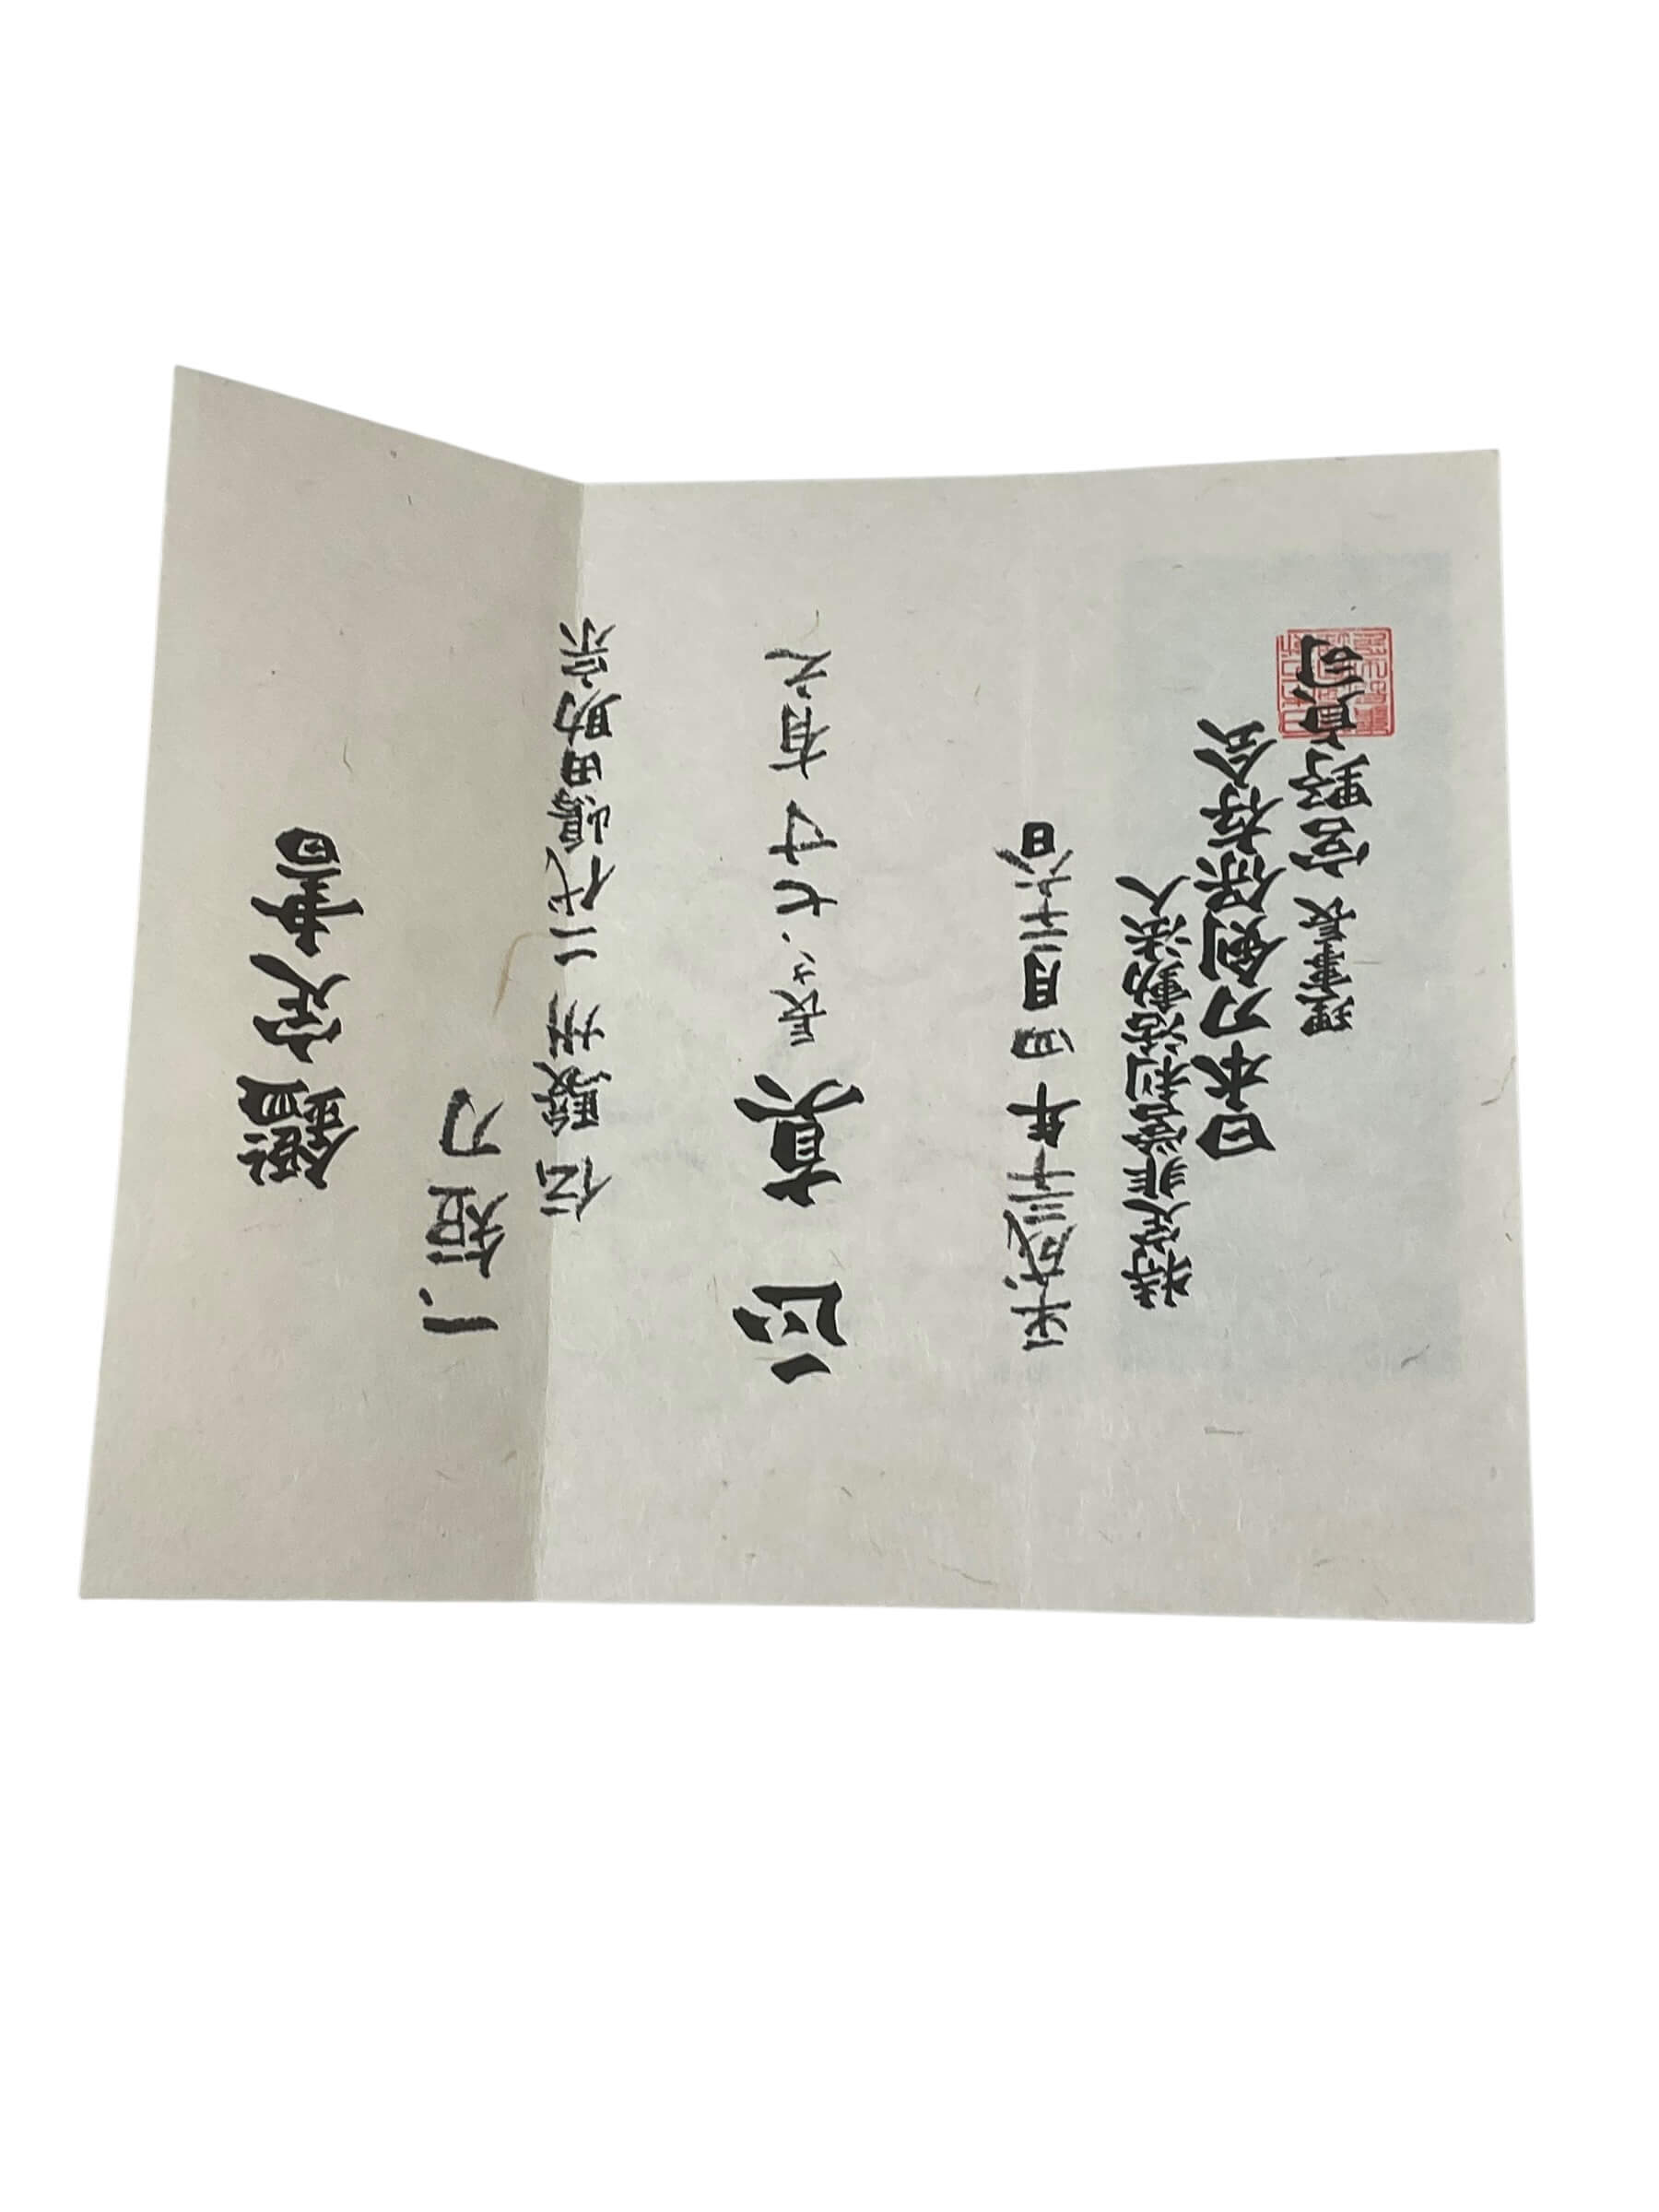 鑑定書
一、短刀
伝 駿州 二代嶋田助宗
正真 長さ、七寸有之
平成三十年四月二十六日
特定非営利活動法人
日本刀剣保存会
理事長 宮野貞司